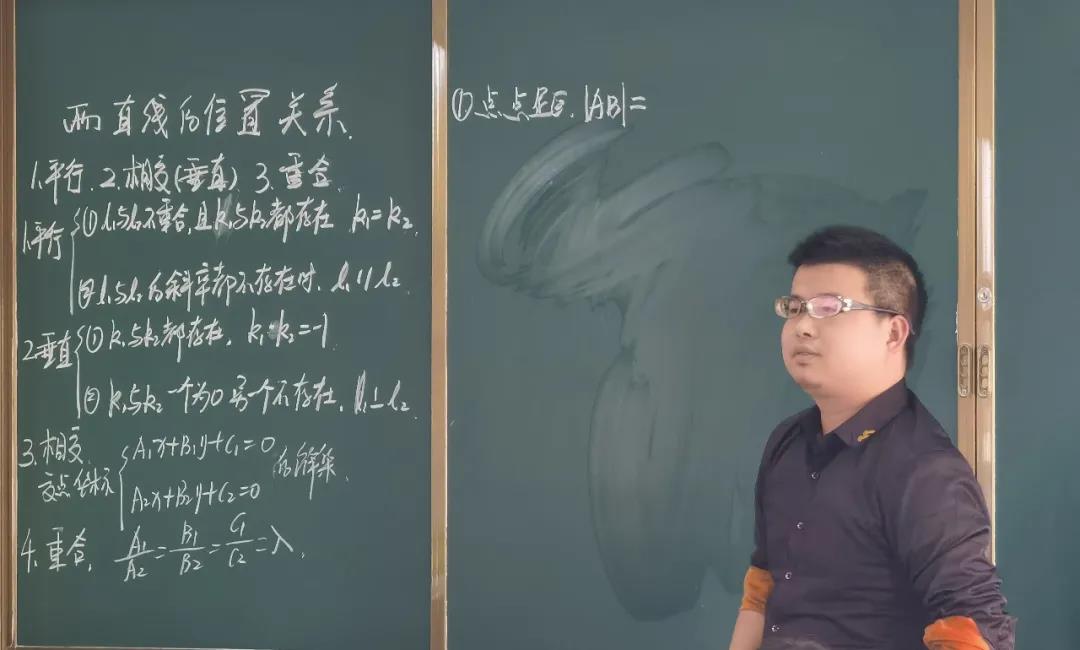 两直线的位置关系.
1.平行. 2.相交(垂直). 3.重合.
1.平行 ①l₁与l₂不重合,且k₁与k₂都存在 k₁=k₂.
②l₁与l₂的斜率都不存在时. l₁∥l₂.
2.垂直 ①k₁与k₂都存在, k₁·k₂=-1
②k₁与k₂一个为0另一个不存在. l₁⊥l₂.
3.相交. A₁x+B₁y+C₁=0
交点坐标 A₂x+B₂y+C₂=0 的解集.
4.重合, A₁/A₂=B₁/B₂=C₁/C₂=λ.
①点点距. |AB|=